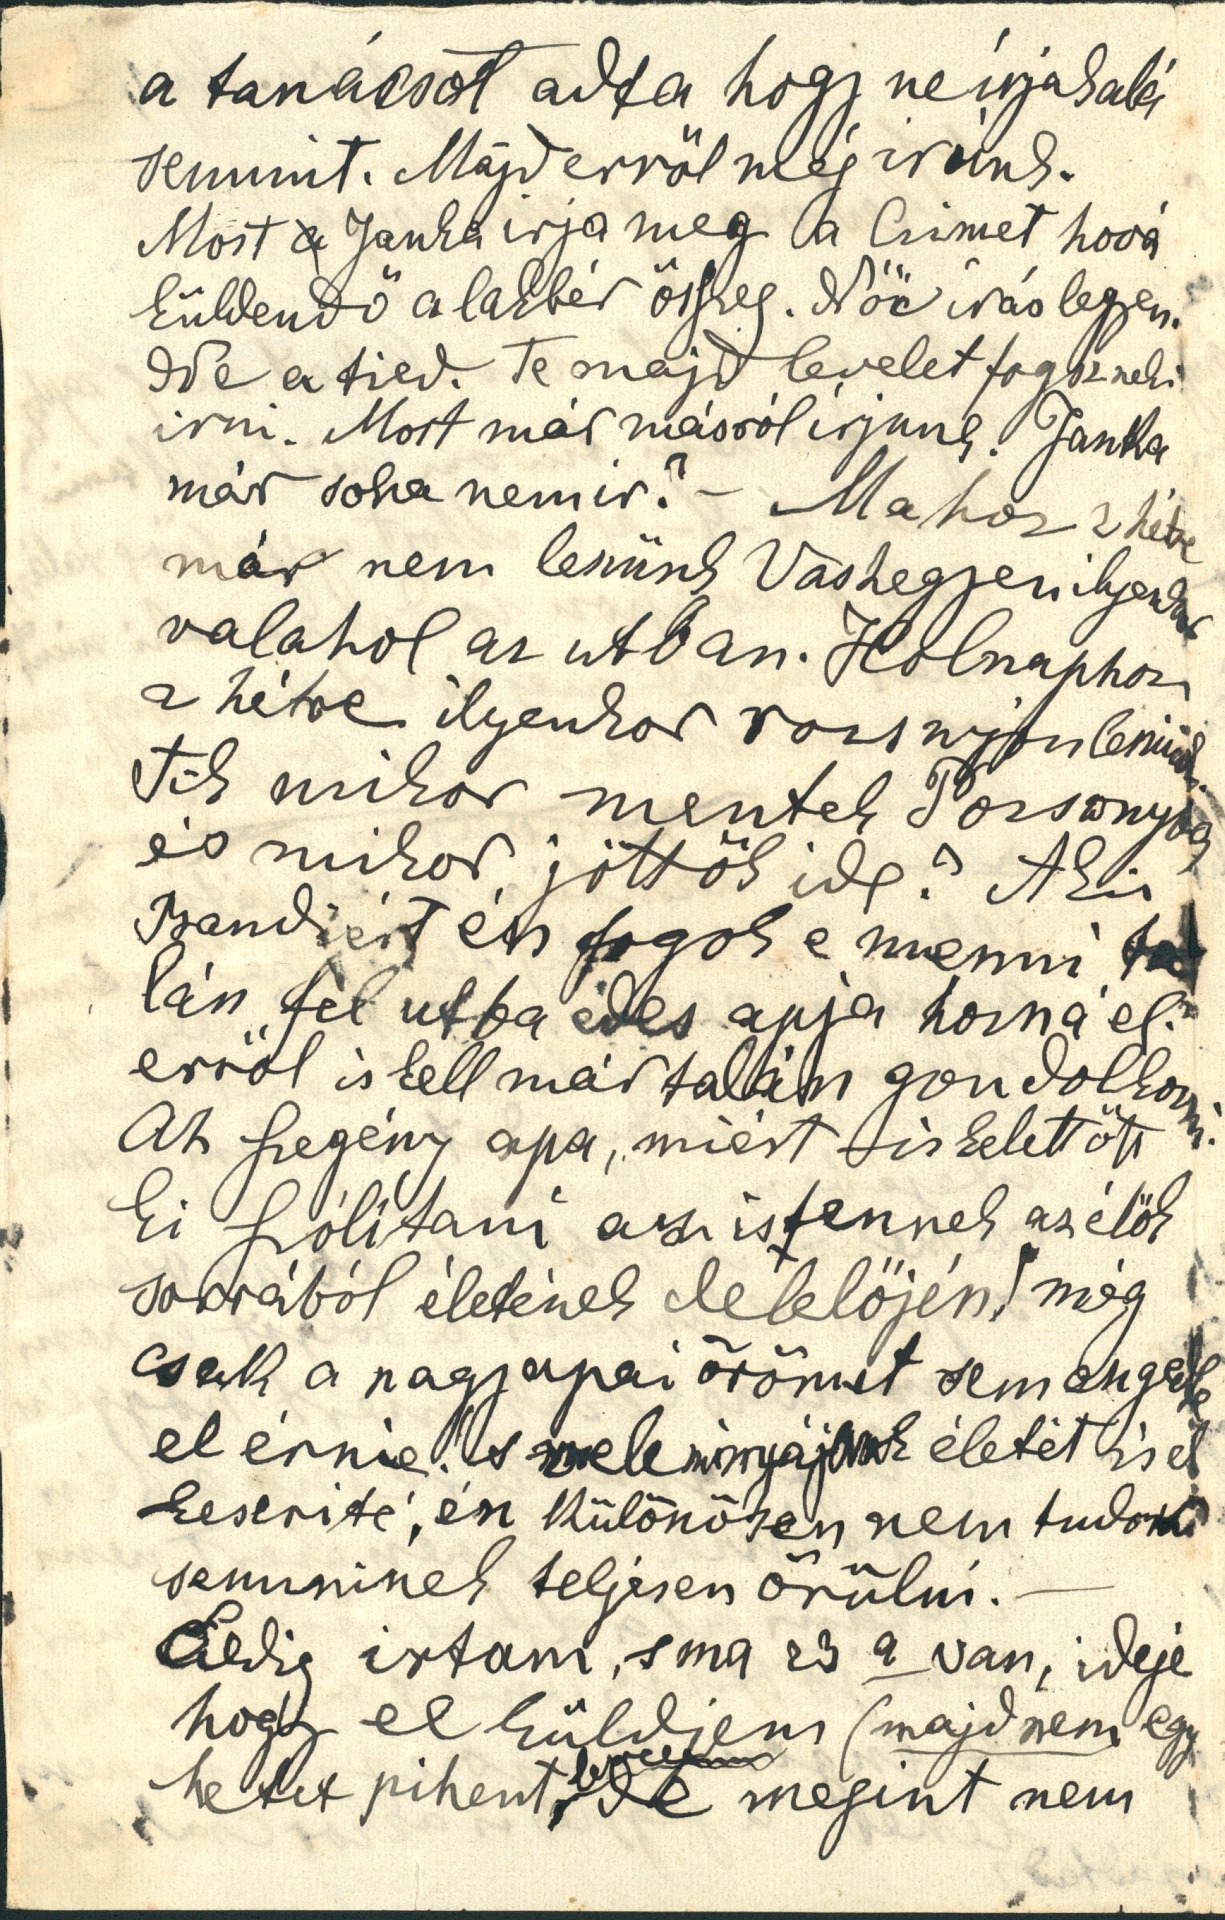 a tanácsot adta hogy ne irjak alá
semmit. Majd erröl még irünk.
Most a Janka irja meg a Cimet hová
küldendö a lakbér összeg. Nöi irás legyen.
De a tied. Te majd levelet fogsz neki
irni. Most már másról irjunk. Janka
már soha nem ir? – Mahoz 2 hétre
már nem leszünk Vashegyen ilyenkor
valahol az utban. Holnaphoz
2 hétre ilyenkor rozsnyón leszünk.
Tik mikor mentek Pozsonyba
és mikor jöttök ide? A kis
Bandiért én fogok e menni ta
lán fél utba édes apja hozná el?
erröl is kell már talán gondolkozni.
Ah szegény apa, miért is kelett öt
ki szólítani az istennek az élök
sorrából életének delelöjén! még
csak a nagyapai örömet sem engedte
el érnie! s mindnyájunk életét is el
keserité, én különösen nem tudok
semminek teljesen örülni. —
Eddig irtam, s ma 23 a van, ideje
hogy el küldjem (majdnem egy
hetet pihent, de megint nem